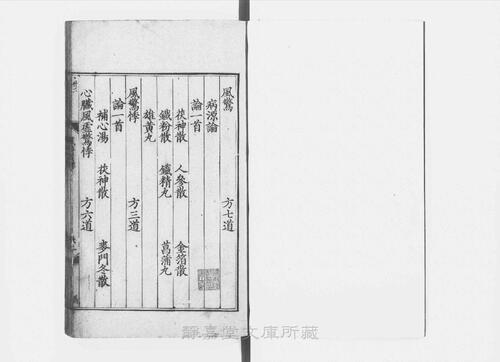 風驚　方七道
病源論
論一首
茯神散　人參散　金箔散
鐵粉散　鐵精丸　菖蒲丸
雄黃丸
風驚悸　方三道
論一首
補心湯　茯神散　麥門冬散
心臟風虛驚悸　方六道
靜嘉堂文庫所藏